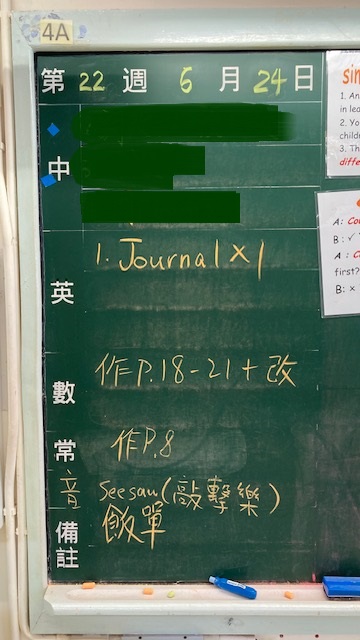 4A
第 22 週 6 月 24 日
中
英 1. Journal × 1
數 作P.18-21+改
常 作P.8
音 Seesaw(敲擊樂)
備註 飯單
sin
1. An
in lea
2. Yo
childr
3. Th
diffe
A: Cou
B: ✓
A : C
first?
B: ×